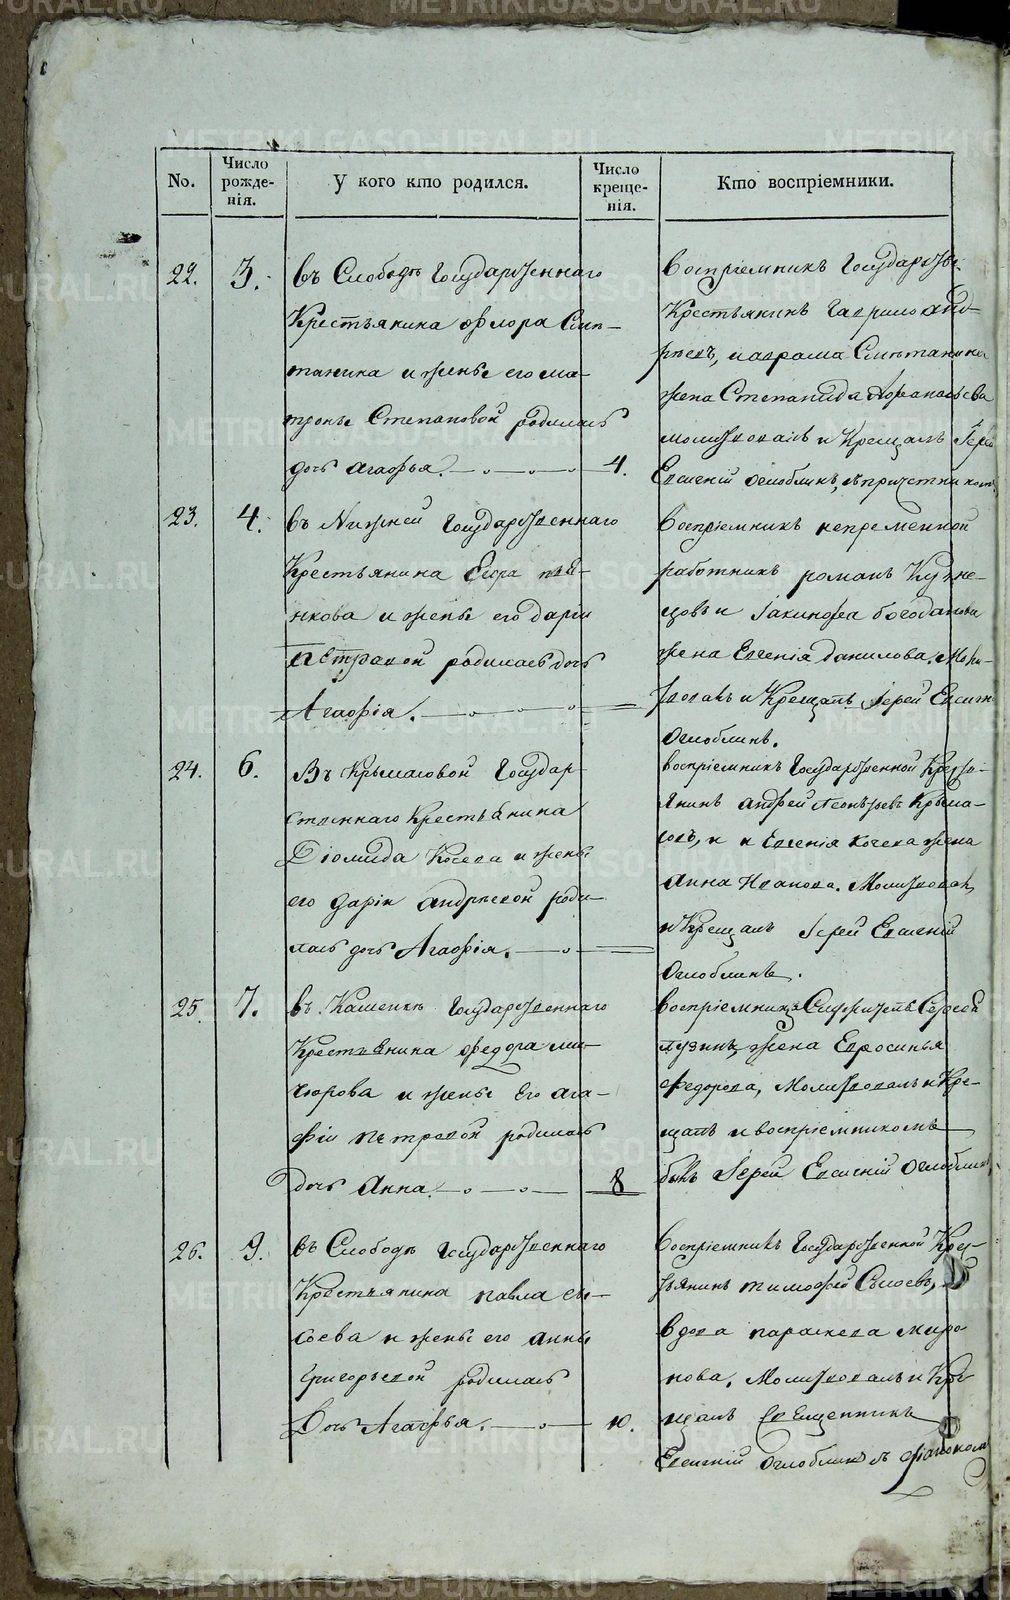 No.
Число рожде-нія.
У кого кто родился.
Число креще-нія.
Кто воспріемники.
22.
3.
въ Слободѣ Государственнаго
Крестьянина Флора Смѣ-
танина и жены его ма-
троны Степановой родилась
дочь Агафья.
4.
Воспріемникъ Государстве.
Крестьянинъ Гаврило Анд-
рѣевъ, Сметанина
жена Степанида Афанасьева
молитвовалъ и Крещалъ Іерей
Евгеній Оглоблинъ, съ причтникомъ
23.
4.
въ Нижней Государственнаго
Крестьянина Егора пьян-
кова и жены его Дарьи
петровой родилась дочь
Агафія.
Воспріемникъ непременной
работникъ романъ Кузне-
цовъ и Іакинфа богоданова
жена Евгенія данилова. Моли-
твовалъ и Крещалъ Іерей Евгеній
Оглоблинъ.
24.
6.
Въ Крымасовой Государ-
ственнаго Крестьянина
Діомида и жены
его Дарьи андрѣевой роди-
лась дочь Агафія.
воспріемникъ Государственной Кресть-
янинъ андрей Леонтьевъ Крыма-
совъ, и Евгенія жена
Анна Иванова. Молитвовалъ
и Крещалъ Іерей Евгеній
Оглоблинъ.
25.
7.
въ Кашенкѣ Государственнаго
Крестьянина федора ми-
хюрова и жены Его ага-
фіи петровой родилась
дочь Анна.
8
Воспріемница Сергей
жена Евфросинья
Федорова, Молитвовалъ и Кре-
щалъ и воспріемникомъ
былъ Іерей Евгеній Оглоблинъ
26.
9.
въ Слободѣ Государственнаго
Крестьянина павла сы-
соева и жены его Анны
Григорьевой родилась
Дочь Агафья.
10.
Воспріемникъ Государственной Крес-
тьянинъ тимофей Сысоевъ,
вдова параскева миро
нова. Молитвовалъ и Кре
щалъ Священникъ
Евгеній Оглоблинъ съ дьякономъ
METRIKI.GASO-URAL.RU